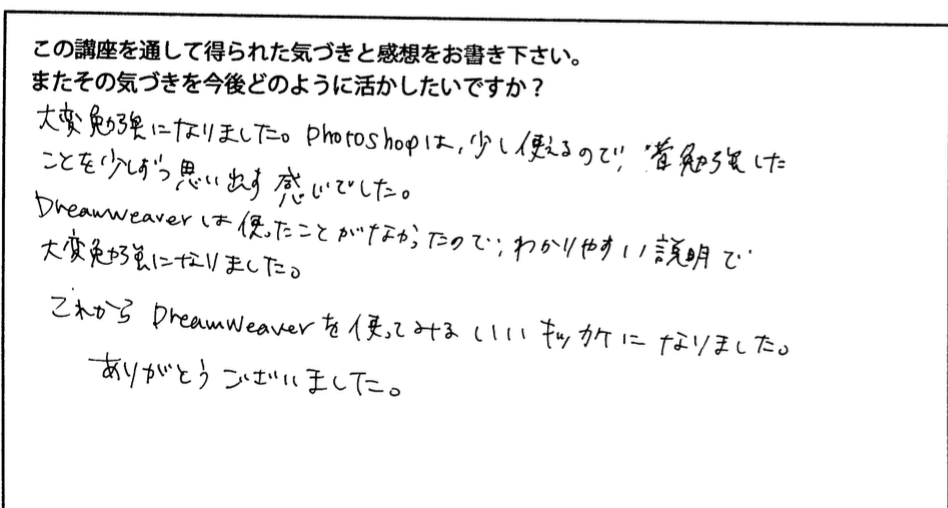 この講座を通して得られた気づきと感想をお書き下さい。
またその気づきを今後どのように活かしたいですか？
大変勉強になりました。Photoshopは、少し使えるので、昔勉強した
ことを少しずつ思い出す感じでした。
Dreamweaverは使ったことがなかったので、わかりやすい説明で
大変勉強になりました。
これからDreamWeaverを使ってみるいいキッカケになりました。
ありがとうございました。